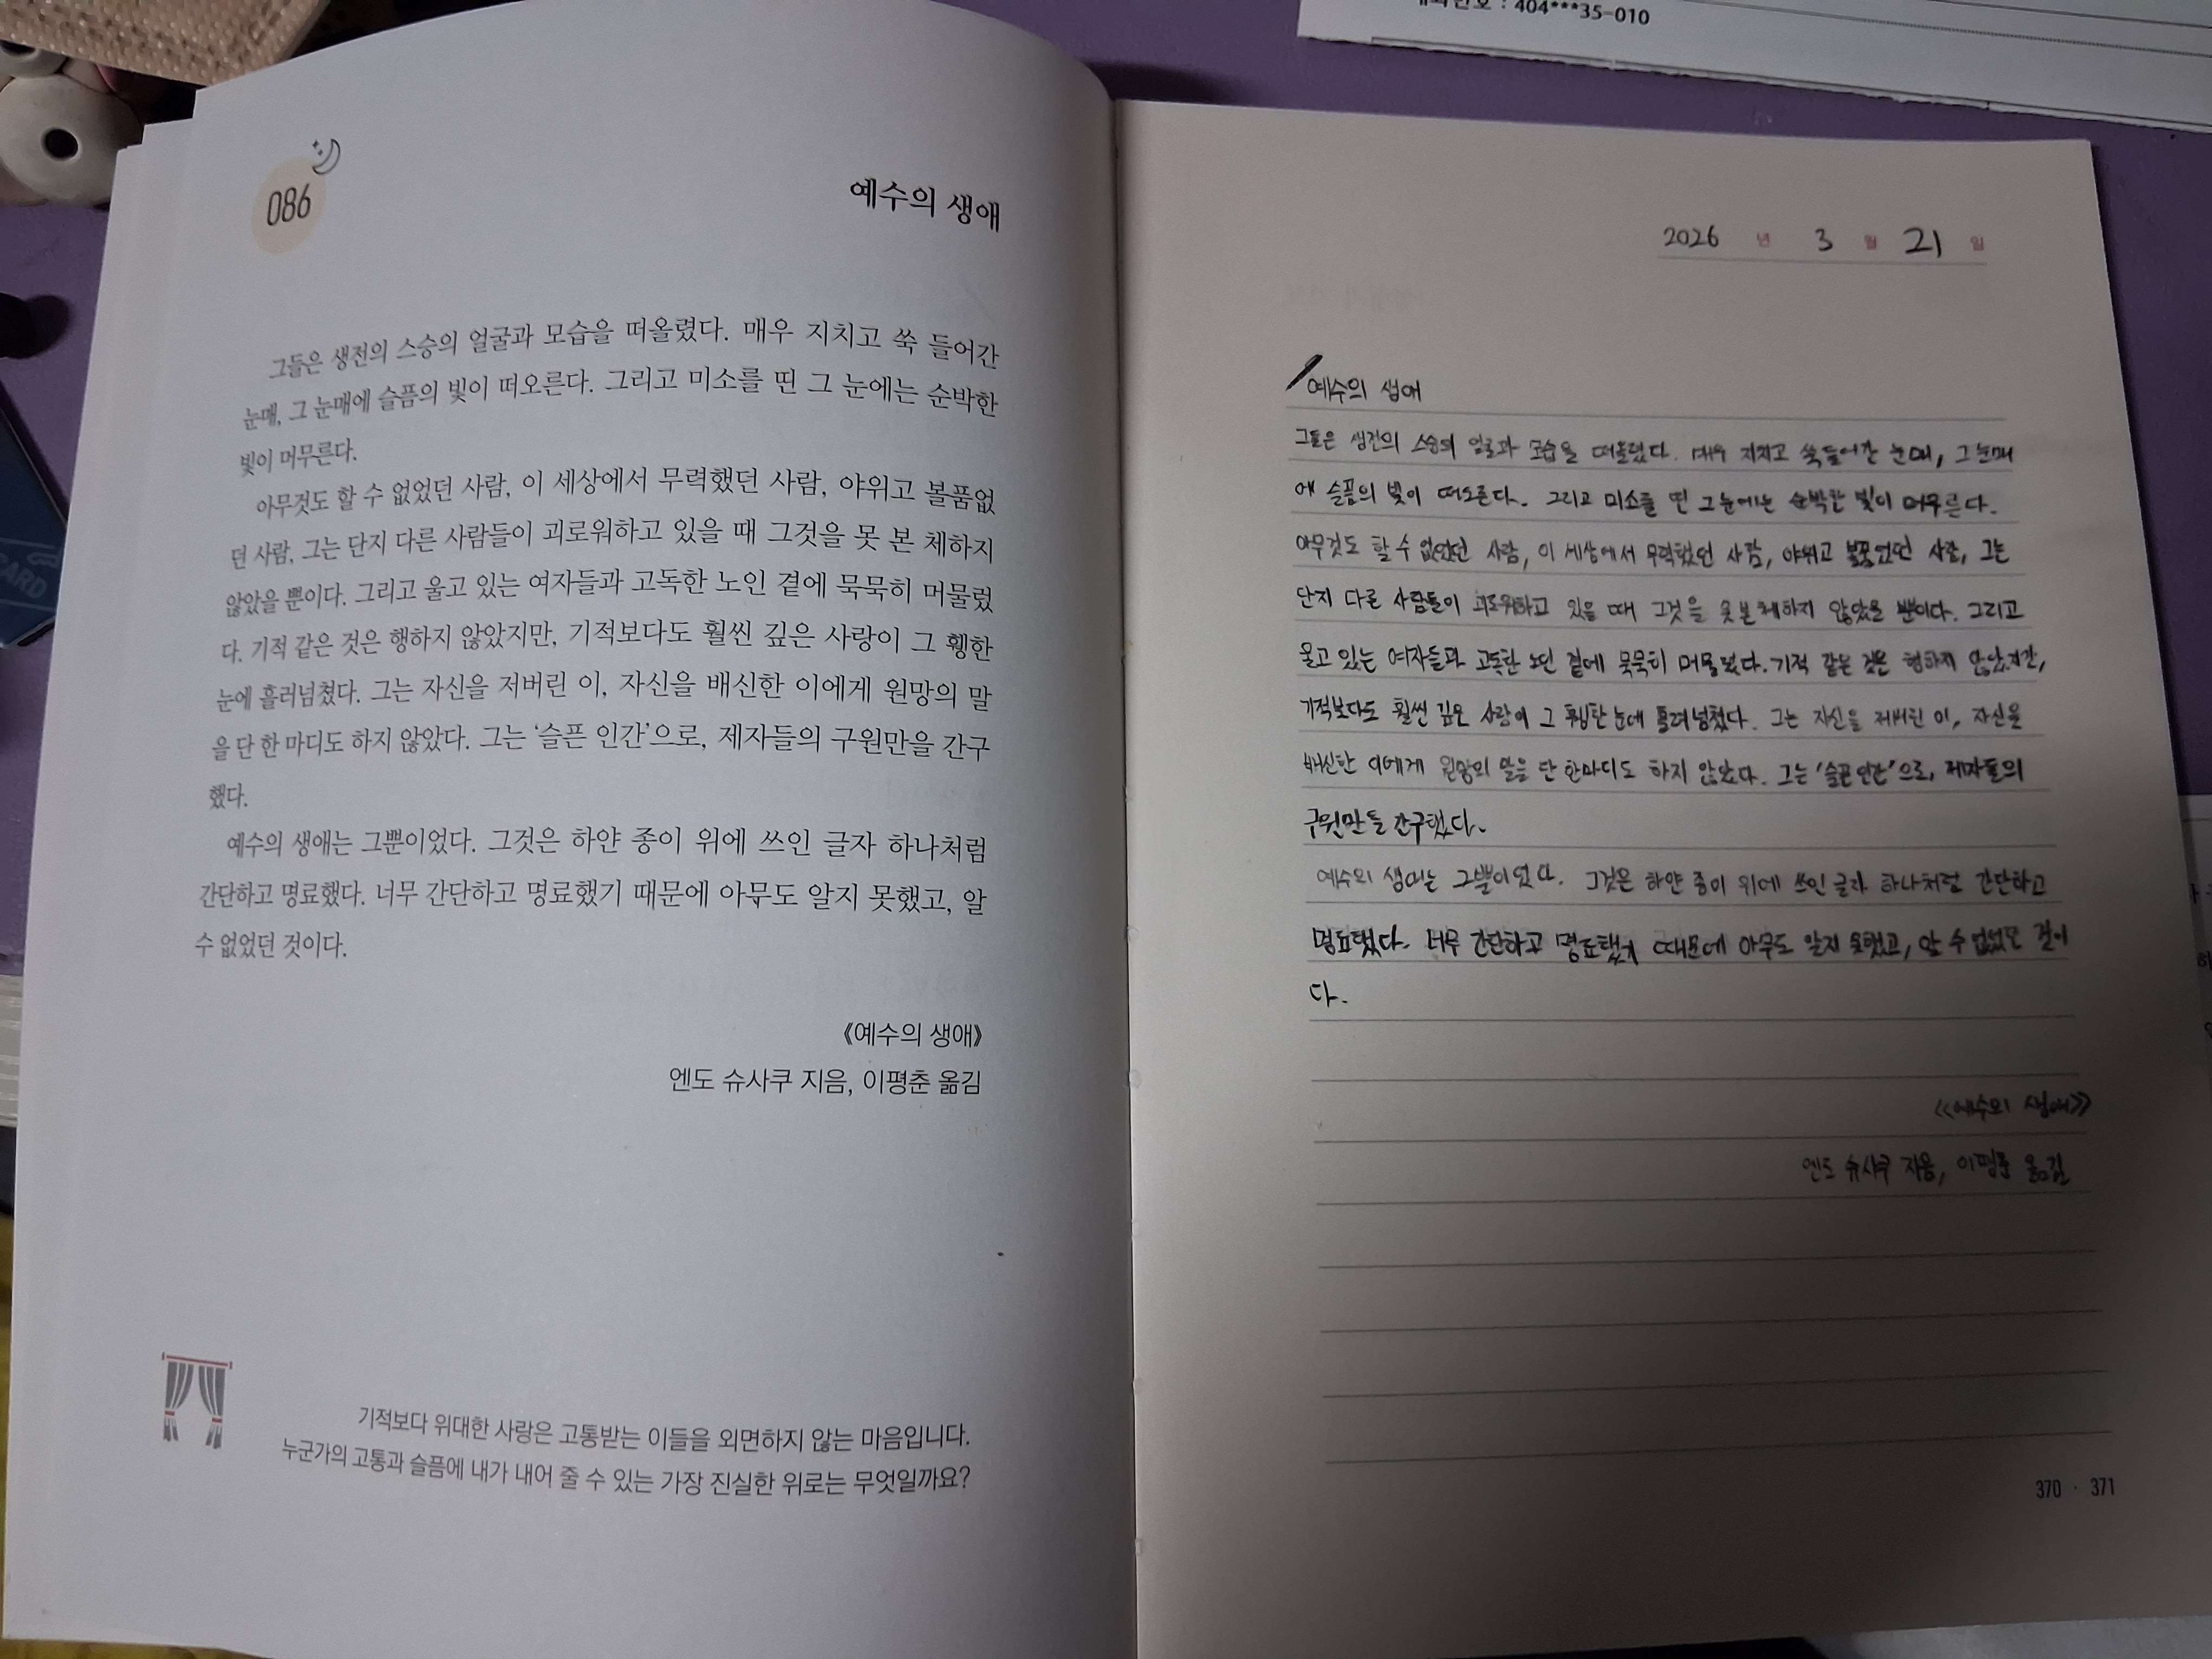 404***35-010
086
예수의 생애
그들은 생전의 스승의 얼굴과 모습을 떠올렸다. 매우 지치고 쑥 들어간
눈매, 그 눈매에 슬픔의 빛이 떠오른다. 그리고 미소를 띤 그 눈에는 순박한
빛이 머무른다.
아무것도 할 수 없었던 사람, 이 세상에서 무력했던 사람, 야위고 볼품없
던 사람, 그는 단지 다른 사람들이 괴로워하고 있을 때 그것을 못 본 체하지
않았을 뿐이다. 그리고 울고 있는 여자들과 고독한 노인 곁에 묵묵히 머물렀
다. 기적 같은 것은 행하지 않았지만, 기적보다도 훨씬 깊은 사랑이 그 휑한
눈에 흘러넘쳤다. 그는 자신을 저버린 이, 자신을 배신한 이에게 원망의 말
을 단 한 마디도 하지 않았다. 그는 ‘슬픈 인간’으로, 제자들의 구원만을 간구
했다.
예수의 생애는 그뿐이었다. 그것은 하얀 종이 위에 쓰인 글자 하나처럼
간단하고 명료했다. 너무 간단하고 명료했기 때문에 아무도 알지 못했고, 알
수 없었던 것이다.
《예수의 생애》
엔도 슈사쿠 지음, 이평춘 옮김
기적보다 위대한 사랑은 고통받는 이들을 외면하지 않는 마음입니다.
누군가의 고통과 슬픔에 내가 내어 줄 수 있는 가장 진실한 위로는 무엇일까요?
2026 년 3 월 21 일
예수의 생애
그들은 생전의 스승의 얼굴과 모습을 떠올렸다. 매우 지치고 쑥 들어간 눈매, 그 눈매
에 슬픔의 빛이 떠오른다. 그리고 미소를 띤 그 눈에는 순박한 빛이 머무른다.
아무것도 할 수 없었던 사람, 이 세상에서 무력했던 사람, 야위고 볼품없던 사람, 그는
단지 다른 사람들이 괴로워하고 있을 때 그것을 못 본 체하지 않았을 뿐이다. 그리고
울고 있는 여자들과 고독한 노인 곁에 묵묵히 머물렀다. 기적 같은 것은 행하지 않았지만,
기적보다도 훨씬 깊은 사랑이 그 휑한 눈에 흘러넘쳤다. 그는 자신을 저버린 이, 자신을
배신한 이에게 원망의 말을 단 한마디도 하지 않았다. 그는 ‘슬픈 인간’으로, 제자들의
구원만을 간구했다.
예수의 생애는 그뿐이었다. 그것은 하얀 종이 위에 쓰인 글자 하나처럼 간단하고
명료했다. 너무 간단하고 명료했기 때문에 아무도 알지 못했고, 알 수 없었던 것이
다.
《예수의 생애》
엔도 슈사쿠 지음, 이평춘 옮김
370 · 371
CARD